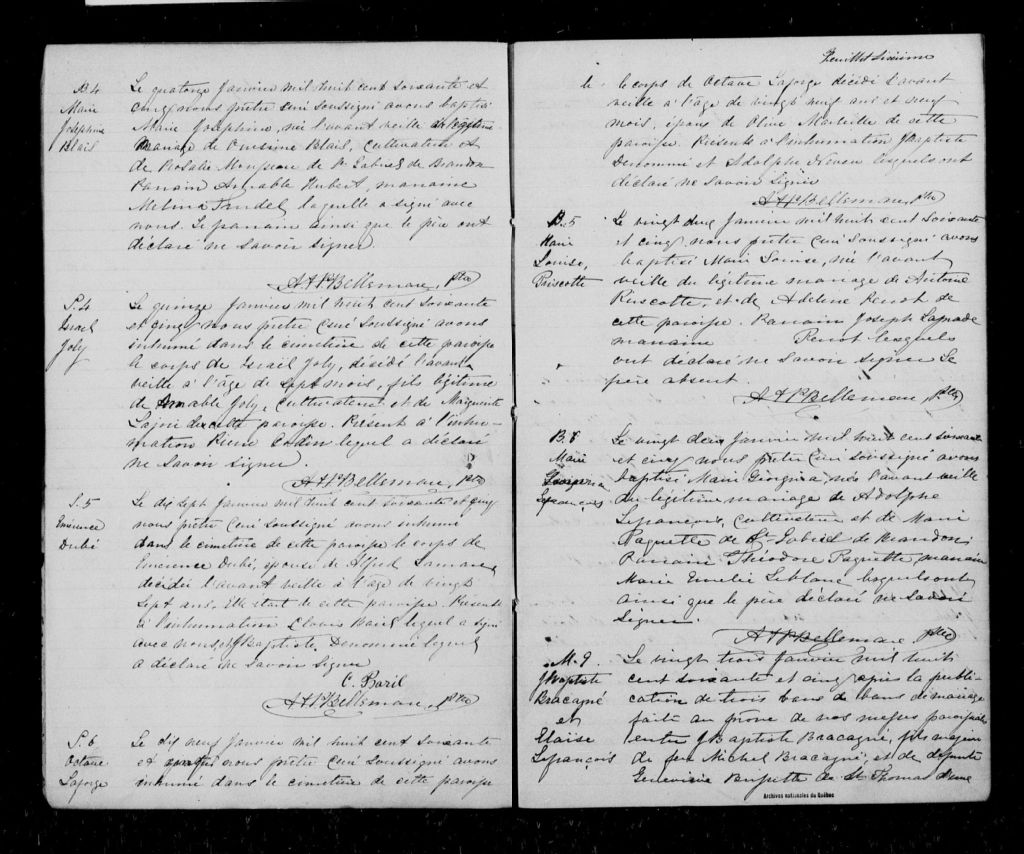 B.4
Marie
Josephine
Blais
Le quatorze Janvier mil huit cent soixante et
cinq nous prêtre Curé soussigné avons baptisé
Marie Josephine, née l'avant veille du légitime
mariage de Onesime Blais, cultivateur et
de Rosalie de St Gabriel de Brandon
Parrain Amable Hubert, marraine
Melina Trudel laquelle a signé avec
nous. Le parrain ainsi que le père ont
déclaré ne savoir signer
A H B Bellemare, Ptre
S.4
Israel
Joly
Le quinze Janvier mil huit cent soixante
et cinq nous prêtre Curé soussigné avons
inhumé dans le cimetière de cette paroisse
le corps de Israël Joly, décédé l'avant
veille à l'âge de sept mois, fils légitime
de Amable Joly, Cultivateur et de Marguerite
de cette paroisse. Présent à l'inhu-
mation Pierre lequel a déclaré
ne savoir signer.
A H B Bellemare, Ptre
S.5
Emerence
Dubé
Le dix sept Janvier mil huit cent soixante et cinq
nous prêtre Curé soussigné avons inhumé
dans le cimetière de cette paroisse le corps de
Emerence Dubé, épouse de Alfred
décédée l'avant veille à l'âge de vingt
sept ans. Elle était de cette paroisse. Présents
à l'inhumation Clovis Baril lequel a signé
avec nous, et JBaptiste Denommé lequel
a déclaré ne savoir signer
C. Baril
A H B Bellemare, Ptre
S.6
Octave
Laforge
Le dix neuf Janvier mil huit cent soixante
et nous prêtre Curé soussigné avons
inhumé dans le cimetière de cette paroisse
Feuillet Sixième
le le corps de Octave Laforge décédé l'avant
veille à l'âge de vingt neuf ans et neuf
mois, époux de Olive de cette
paroisse. Présents à l'inhumation JBaptiste
Denommé et Adolphe lesquels ont
déclaré ne savoir signer
A H B Bellemare, Ptre
B.5
Marie
Louise,
Priscotte
Le vingt deux Janvier mil huit cent soixante
et cinq nous prêtre Curé soussigné avons
baptisé Marie Louise, née l'avant
veille du légitime mariage de Antoine
Priscotte, et de Adeline Perrot de
cette paroisse. Parrain Joseph
marraine Perrot lesquels
ont déclaré ne savoir signer Le
père absent.
A H B Bellemare, Ptre
B.8
Marie
Georgina
Lefrançois
Le vingt deux Janvier mil huit cent soixante
et cinq nous prêtre Curé soussigné avons
baptisé Marie Georgina, née l'avant veille
du légitime mariage de Adolphe
Lefrançois, Cultivateur et de Marie
Paquette de St Gabriel de Brandon,
Parrain Théodore Paquette marraine
Marie Emelie Leblanc lesquels ont
ainsi que le père déclaré ne savoir
signer.
A H B Bellemare Ptre
M.9
JBaptiste
Bracagné
et
Elaise
Lefrançois
Le vingt trois Janvier mil huit
cent soixante et cinq après la publi-
cation de trois bans de bans de mariage
faite au prône de nos messes paroissiales
entre JBaptiste Bracagné, fils majeur
de feu Michel Bracagné, et de défunte
Geneviève de St Thomas d'une
Archives nationales du Québec